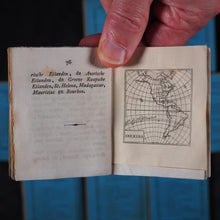 76
rische Eilanden, de Azorische
Eilanden, de Groene Kaapsche
Eilanden, St. Helena, Madagascar,
Mauritius en Bourbon.
AMERIKA